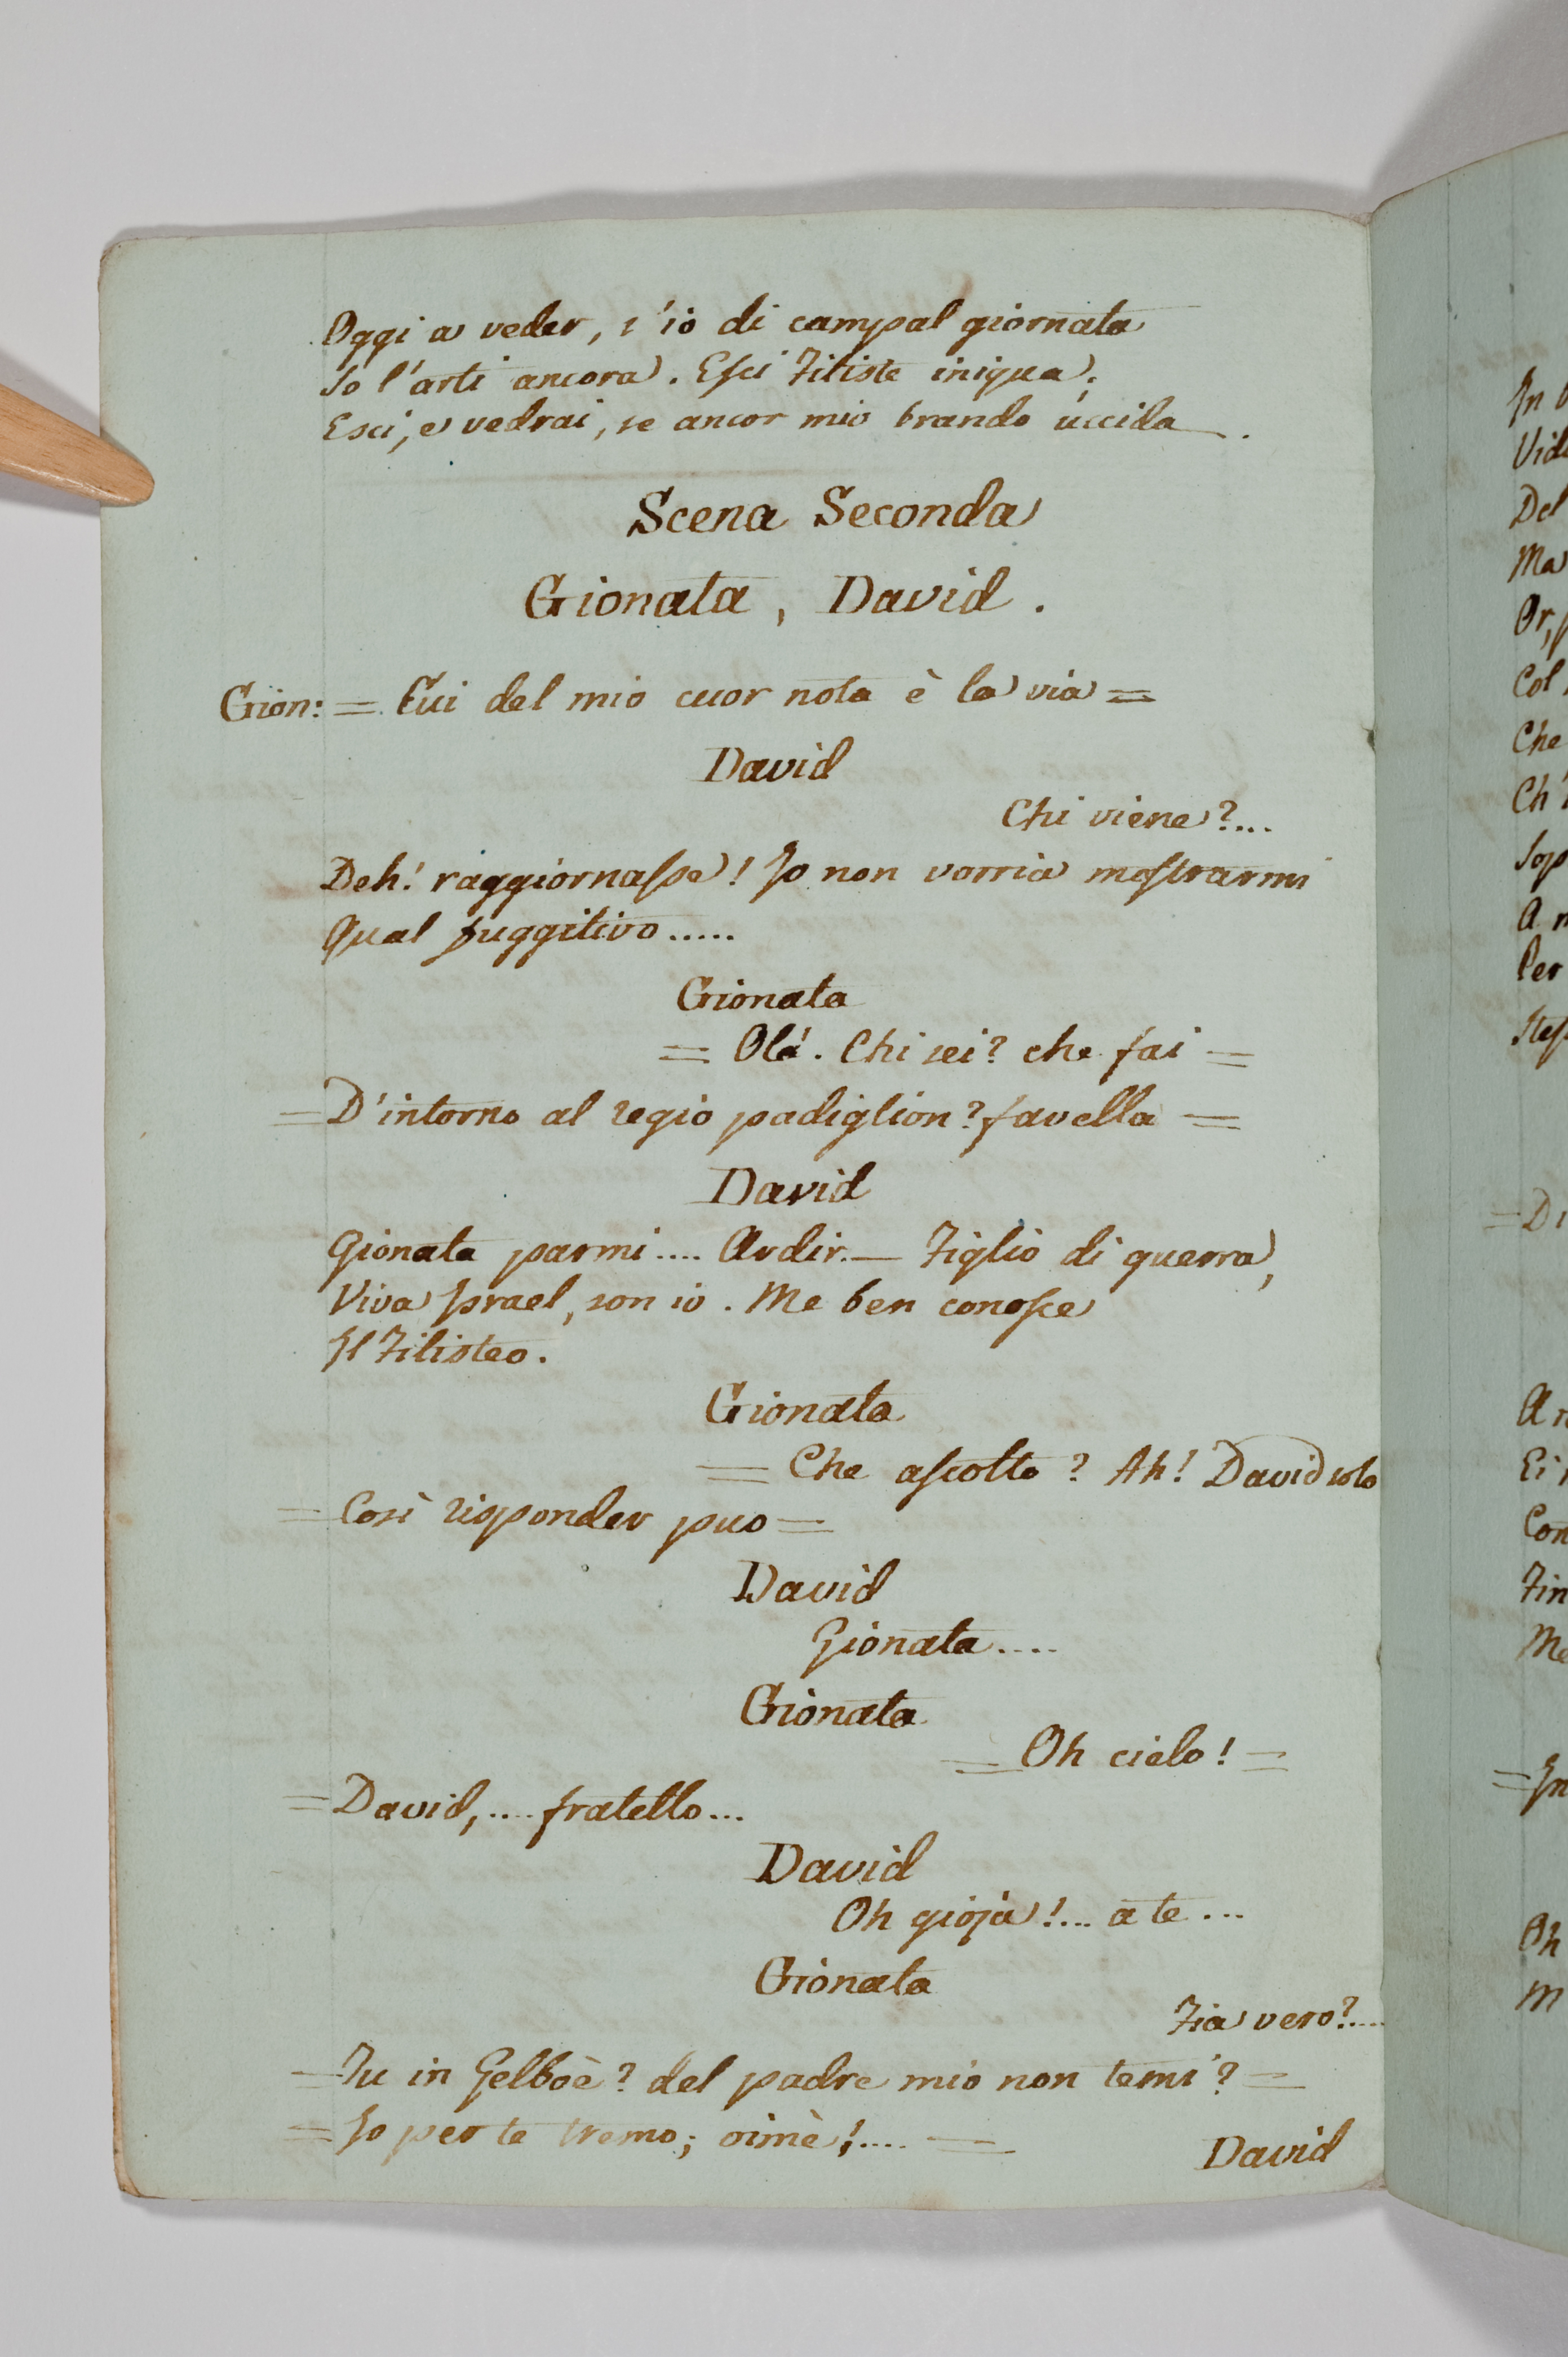 Oggi a veder, s'io di campal giornata
So l'arti ancora. Esci Filiste iniqua;
Esci, e vedrai, se ancor mio brando uccida.
Scena Seconda
Gionata, David.
Gion: = Cui del mio cuor nota è la via =
David
Chi viene?...
Deh! raggiornasse! Io non vorria mostrarmi
Qual fuggitivo.....
Gionata
= Olá. Chi sei? che fai =
= D'intorno al regio padiglion? favella =
David
Gionata parmi.... Ardir.— Figlio di guerra,
Viva Israel, son io. Me ben conosce
Il Filisteo.
Gionata
= Che ascolto? Ah! David solo
= Così risponder puo =
David
Gionata....
Gionata
= Oh cielo! =
= David,.... fratello...
David
Oh gioja!... a te...
Gionata
Fia vero?....
= Tu in Gelboè? del padre mio non temi? =
= Io per te tremo; oimè!.... =
David
In
Vid
Del
Ma
Or,
Col
Che
Ch'
Sop
A m
Per
Stess
= Di
A
Ei
Con
Fin
Me
= In
Oh
M